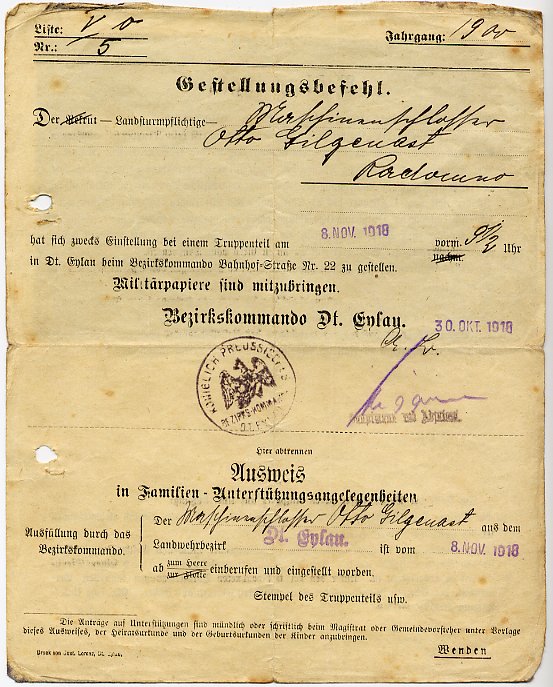 Liste: V 0
Nr.: 5
Jahrgang: 1900
Gestellungsbefehl.
Der Rekrut — Landsturmpflichtige — Maschinenschlosser
Otto Gilgenast
Radomno
hat sich zwecks Einstellung bei einem Truppenteil am 8. NOV. 1918 vorm. 9 1/2 Uhr
nachm.
in Dt. Eylau beim Bezirkskommando Bahnhof-Straße Nr. 22 zu gestellen.
Militärpapiere sind mitzubringen.
Bezirkskommando Dt. Eylau.
30. OKT. 1918
KÖNIGLICH PREUSSISCHES
BEZIRKS-KOMMANDO
DT. EYLAU
Hauptmann und Adjutant
Hier abtrennen
Ausweis
in Familien-Unterstützungsangelegenheiten
Ausfüllung durch das
Bezirkskommando.
Der Maschinenschlosser Otto Gilgenast aus dem
Landwehrbezirk Dt. Eylau. ist vom 8. NOV. 1918
ab zum Heere
zur Flotte einberufen und eingestellt worden.
Stempel des Truppenteils usw.
Die Anträge auf Unterstützungen sind mündlich oder schriftlich beim Magistrat oder Gemeindevorsteher unter Vorlage
dieses Ausweises, der Heiratsurkunde und der Geburtsurkunden der Kinder anzubringen.
Druck von Just. Lorenz, Dt. Eylau.
Wenden